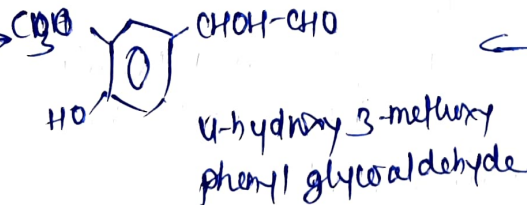 CH3O
CHOH-CHO
HO
4-hydroxy 3-methoxy
phenyl glycoaldehyde